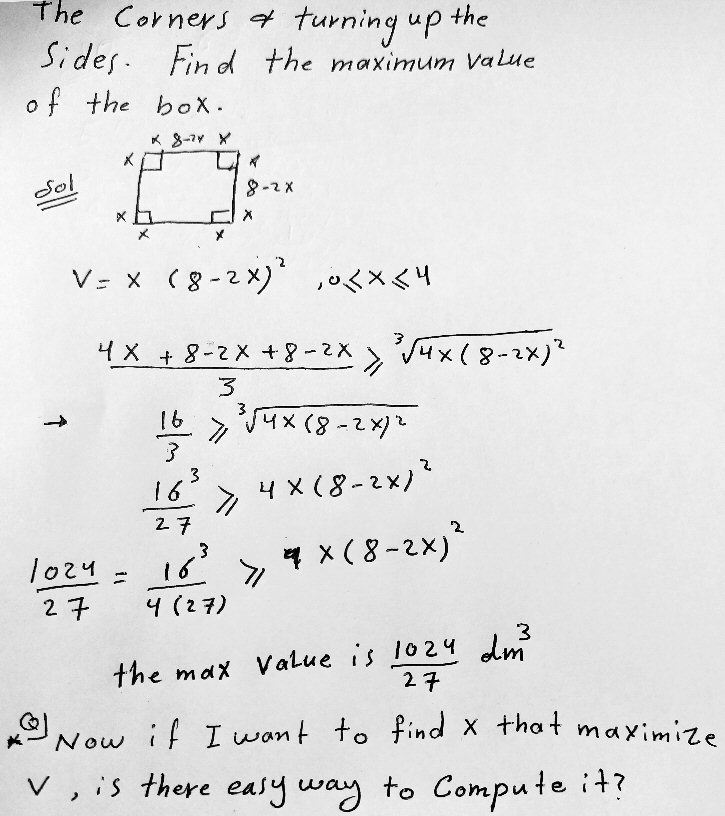 The Corners & turning up the
Sides. Find the maximum value
of the box.
x 8-2x x
x x
Sol
8-2x
x x
x x
V = x (8-2x)² , 0≤x≤4
(4x + 8-2x + 8-2x)/3 ≥ ∛(4x(8-2x)²)
→ 16/3 ≥ ∛(4x(8-2x)²)
16³/27 ≥ 4x(8-2x)²
1024/27 = 16³/4(27) ≥ x(8-2x)²
the max value is 1024/27 dm³
*Q] Now if I want to find x that maximize
V, is there easy way to compute it?